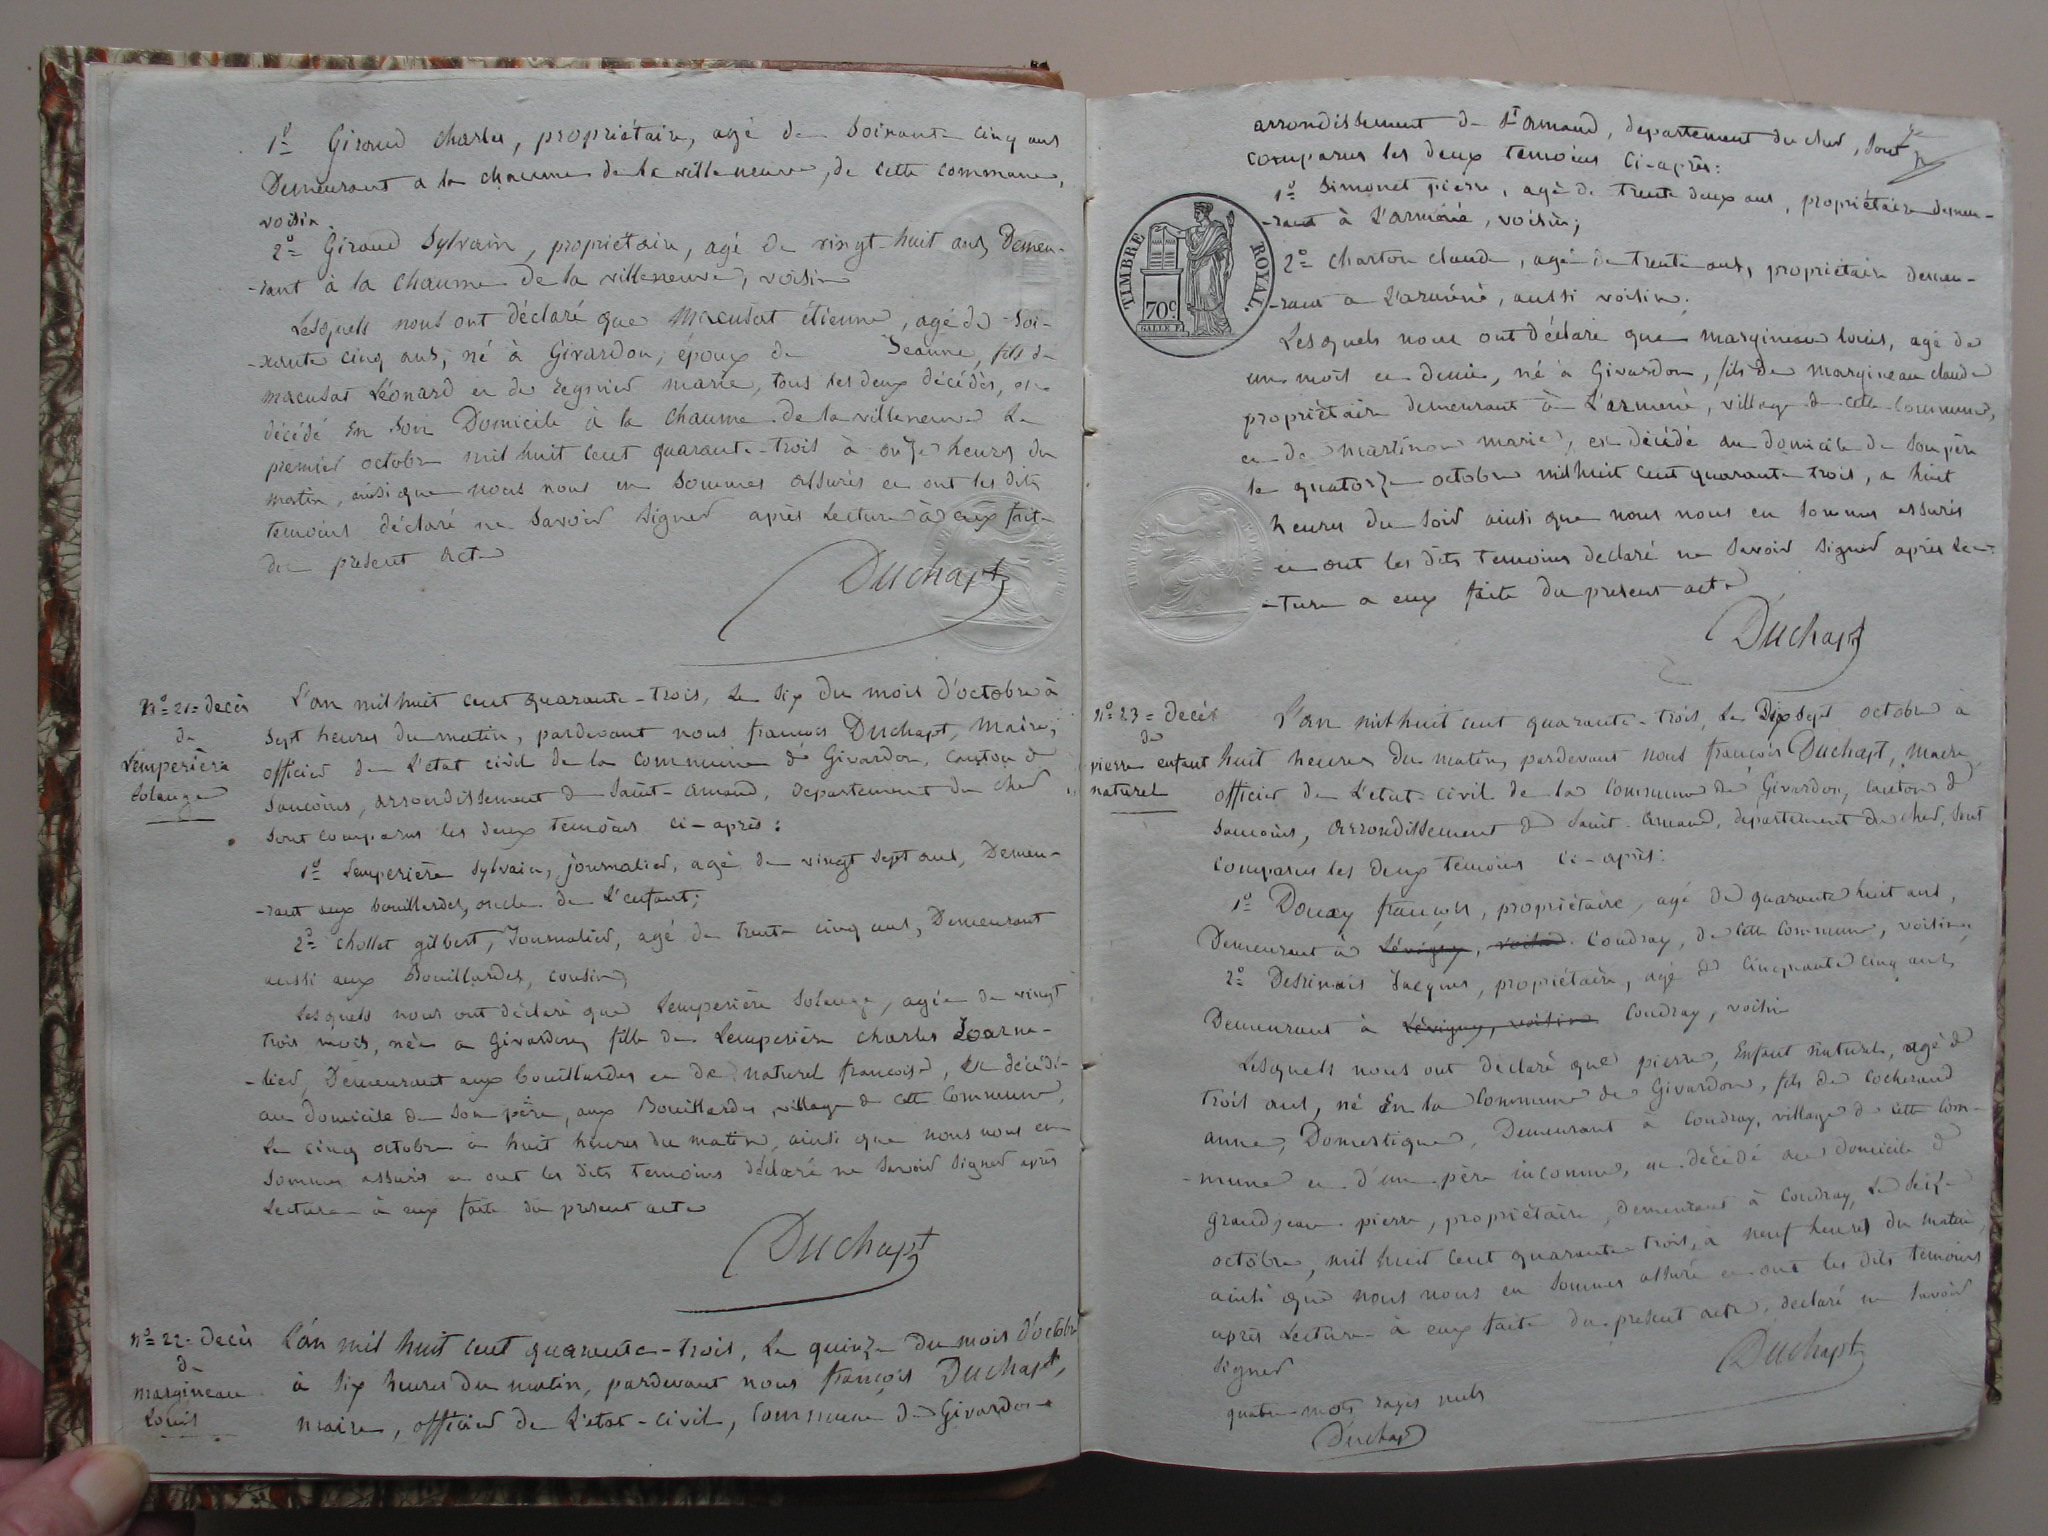 1º Giraud Charles, propriétaire, agé de soixante cinq ans
Demeurant a la chaume de la villeneuve, de cette commune,
voisin
2º Giraud Sylvain, propriétaire, agé de vingt huit ans, Demeu-
-rant à la chaume de la villeneuve, voisin
Lesquels nous ont déclaré que Macusat étienne, agé de soi-
-xante cinq ans, né à Givardon, époux de Jeanne, fils de
Macusat Léonard et de Regnier marie, tous les deux décédés, est
décédé En son Domicile à la chaume de la villeneuve Le
premier octobre mil huit cent quarante-trois à onze heures du
matin, ainsi que nous nous en sommes assurés et ont les dits
temoins déclaré ne savoir signer après Lecture à eux faite
du présent acte
Duchapt
nº 21 = décès
de
Lemperière
Solange
L'an mil huit cent quarante-trois, Le six du mois d'octobre à
sept heures du matin, pardevant nous françois Duchapt, Maire,
officier de L'état civil de la commune de Givardon, canton de
Sancoins, arrondissement de Saint-amand, Département du cher
sont comparus les deux temoins ci-après :
1º Lemperière Sylvain, journalier, agé de vingt sept ans, Demeu-
-rant aux bouillardes, oncle de L'enfant;
2º chollet gilbert, Journalier, agé de trente cinq ans, Demeurant
aussi aux Bouillardes, cousin,
Lesquels nous ont déclaré que Lemperière Solange, agée de vingt
trois mois, née a Givardon, fille de Lemperière charles Journa-
-lier, Demeurant aux bouillardes et de naturel françoise, Est décédée
au Domicile de son père, aux Bouillardes village de cette commune,
Le cinq octobre à huit heures du matin, ainsi que nous nous en
sommes assurés et ont les dits temoins déclaré ne savoir signer après
Lecture à eux faite du present acte
Duchapt
nº 22 = décès
de
margineau
Louis
L'an mil huit cent quarante-trois, Le quinze du mois d'octobre
à six heures du matin, pardevant nous françois Duchapt,
maire, officier de L'état-civil, commune de Givardon
arrondissement de St amand, departement du cher, sont
comparus les deux temoins ci-après :
TIMBRE ROYAL
70c
1º Simonet pierre, agé de trente deux ans, propriétaire demeu-
-rant à L'armené, voisin;
2º charton claude, agé de trente ans, propriétaire demeu-
-rant a L'armené, aussi voisin.
Lesquels nous ont déclaré que margineau louis, agé de
un mois et demi, né à Givardon, fils de Margineau claude
propriétaire demeurant à L'armené, village de cette commune,
et de martinon marie, est décédé au domicile de son père
le quatorze octobre mil huit cent quarante trois, a huit
heures du soir ainsi que nous nous en sommes assurés
et ont les dits temoins declaré ne savoir signer après Lec-
-ture a eux faite du present acte
Duchapt
nº 23 = décès
de
pierre enfant
naturel
L'an mil huit cent quarante-trois, Le Dix sept octobre à
huit heures du matin, pardevant nous françois Duchapt, Maire,
officier de L'état-civil de la commune de Givardon, canton de
Sancoins, arrondissement de Saint-amand, departement du cher, sont
comparus les deux temoins ci-après :
1º Douay françois, propriétaire, agé de quarante huit ans,
Demeurant à Lévigny, voisin. Coudray, de cette commune, voisin,
2º Desrinais Jacques, propriétaire, agé de cinquante cinq ans,
Demeurant à Lévigny, voisin. Coudray, voisin
Lesquels nous ont déclaré que pierre, Enfant naturel, agé de
trois ans, né En la commune de Givardon, fils de cocherand
anne, Domestique, Demeurant à Coudray, village de cette com-
-mune et d'un père inconnu, est décédé au domicile de
grandjean pierre, propriétaire, demeurant à Coudray, Le seize
octobre, mil huit cent quarante-trois, à neuf heures du matin,
ainsi que nous nous en sommes assuré et ont les dits temoins
après Lecture à eux faite du present acte, declaré ne savoir
signer
Duchapt
quatre mots rayés nuls
Duchapt